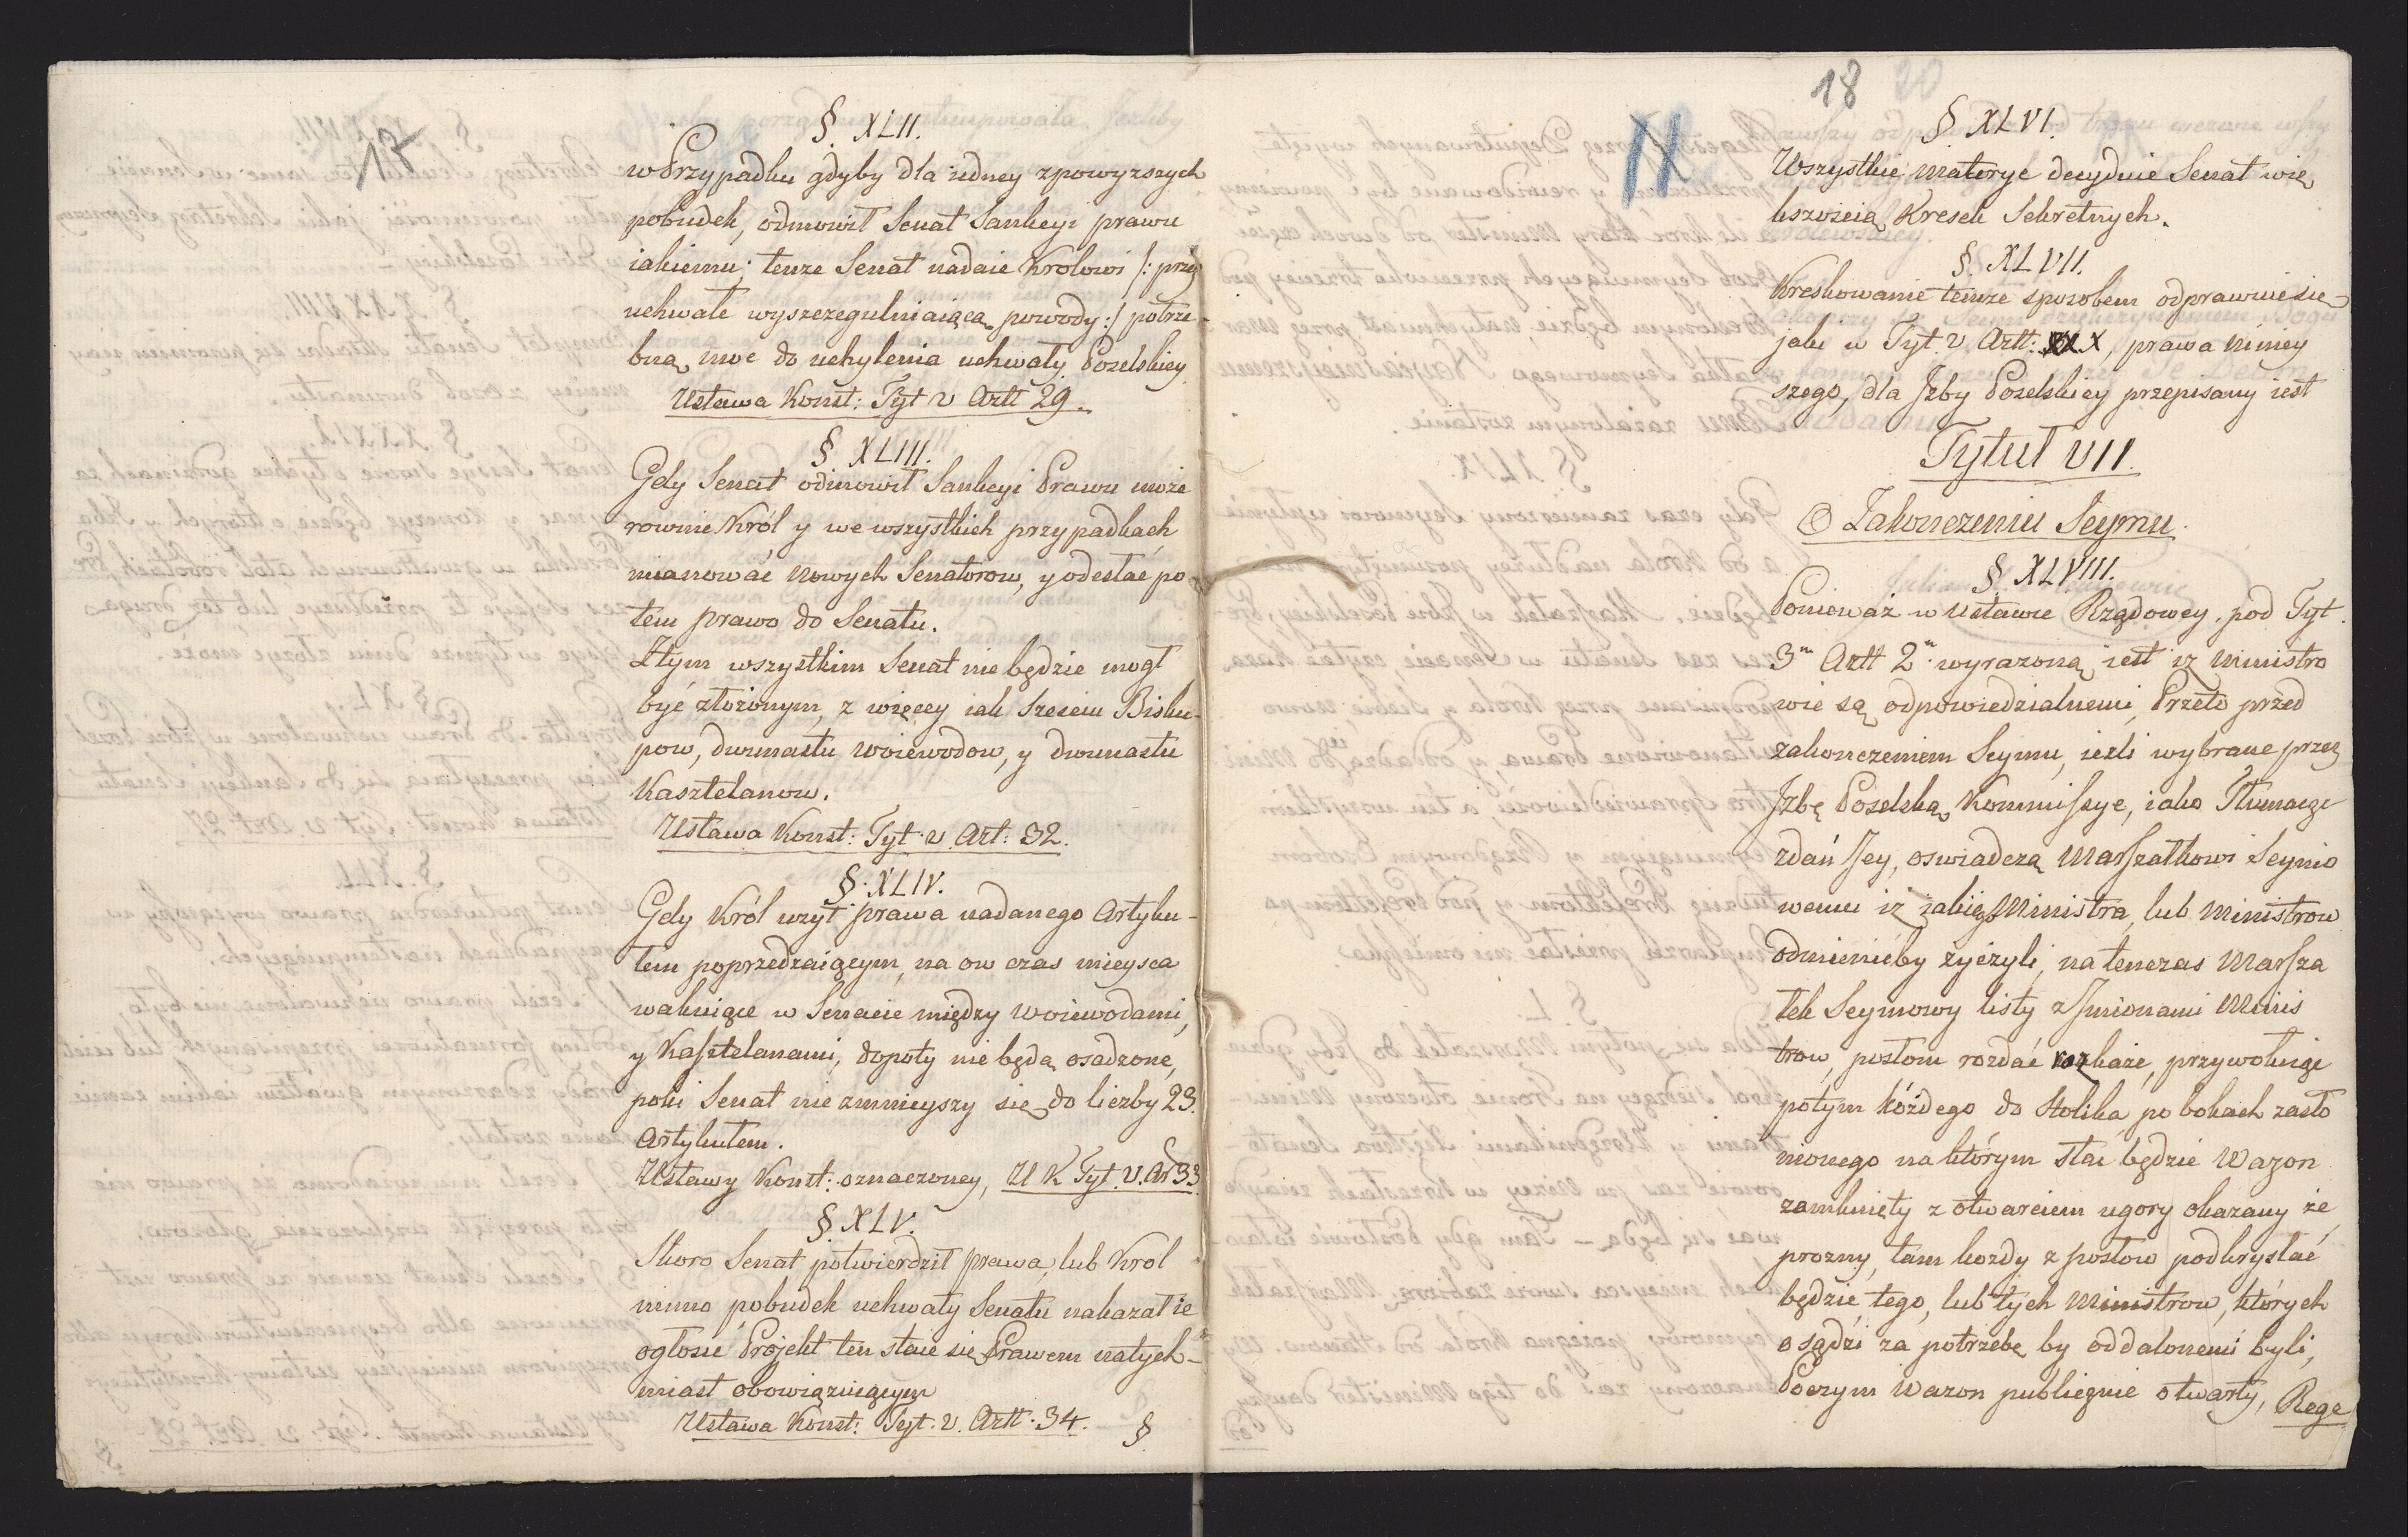 17
§. XLII.
w Przypadku gdyby dla iedney zpowyzszych
pobudek, odmowił Senat Sankcyi prawu
iakiemu; tenze Senat nadaie Krolowi /: przy
uchwale wyszczegulniaiącą powody :/ potrze-
bną moc do uchylenia uchwały Poselskiey
Ustawa Konst: Tyt V Artt 29.
§ XLIII.
Gdy Senat odmowił Sankcyi Prawu może
rownie Król y we wszystkich przypadkach
mianować nowych Senatorow, y odesłać po
tem prawo do Senatu.
Ztym wszystkim Senat nie będzie mogł
być złożonym, z więcey iak Sześciu Bisku-
pow, dwunastu Woiewodow, y dwunastu
Kasztelanow.
Ustawa Konst: Tyt. V. Art: 32.
§. XLIV.
Gdy Król uzył prawa nadanego Artyku-
łem poprzedzaiącym, na ow czas mieysca
wakuiące w Senacie między Woiewodami,
y Kasztelanami, dopoty nie będą osadzone,
poki Senat nie zmnieyszy się do liczby 23.
Artykułem.
Ustawy Konst: oznaczoney, U K Tyt. V. Ar 33
§. XLV.
Skoro Senat potwierdził prawa, lub Krol
mimo pobudek uchwały Senatu nakazał ie
ogłosić Projekt ten staie się Prawem natych-
miast obowiązuiącym
Ustawa Konst: Tyt. V. Artt. 34.
§
18 20
§ XLVI.
Wszystkie materye decyduie Senat wię
kszością Kresek Sekretnych.
§. XLVII.
Kreskowanie temze sposobem odprawuie się
jaki w Tyt V Artt: X, prawa niniey
szego, dla Jzby Poselskiey przepisany iest
Tytuł VII.
O Zakonczeniu Seymu.
§. XLVIII.
Ponieważ w Ustawie Rządowey, pod Tyt.
3m Artt 2m wyrazoną iest iz Ministro
wie są odpowiedzialnemi, Przeto przed
zakonczeniem Seymu, iezli wybrane przez
Jzbę Poselską Kommissye, iako Tłumacze
zdań Jey, oswiadczą Marszałkowi Seymo
wemu iz iakiego Ministra, lub Ministrow
odmienićby zyczyli, na tenczas Marsza
łek Seymowy listy z Jmionami Minis
trow, posłom rozdać rozkaże, przywołuiąc
potym kóżdego do Stolika po bokach zasło
nionego na którym stać będzie Wazon
zamknięty z otwarciem ugory okazany że
prozny, tam kozdy z posłow podkryslać
będzie tego, lub tych Ministrow, których
osądzi za potrzebę by oddalonemi byli,
Poczym Wazon publicznie otwarty,
Rege